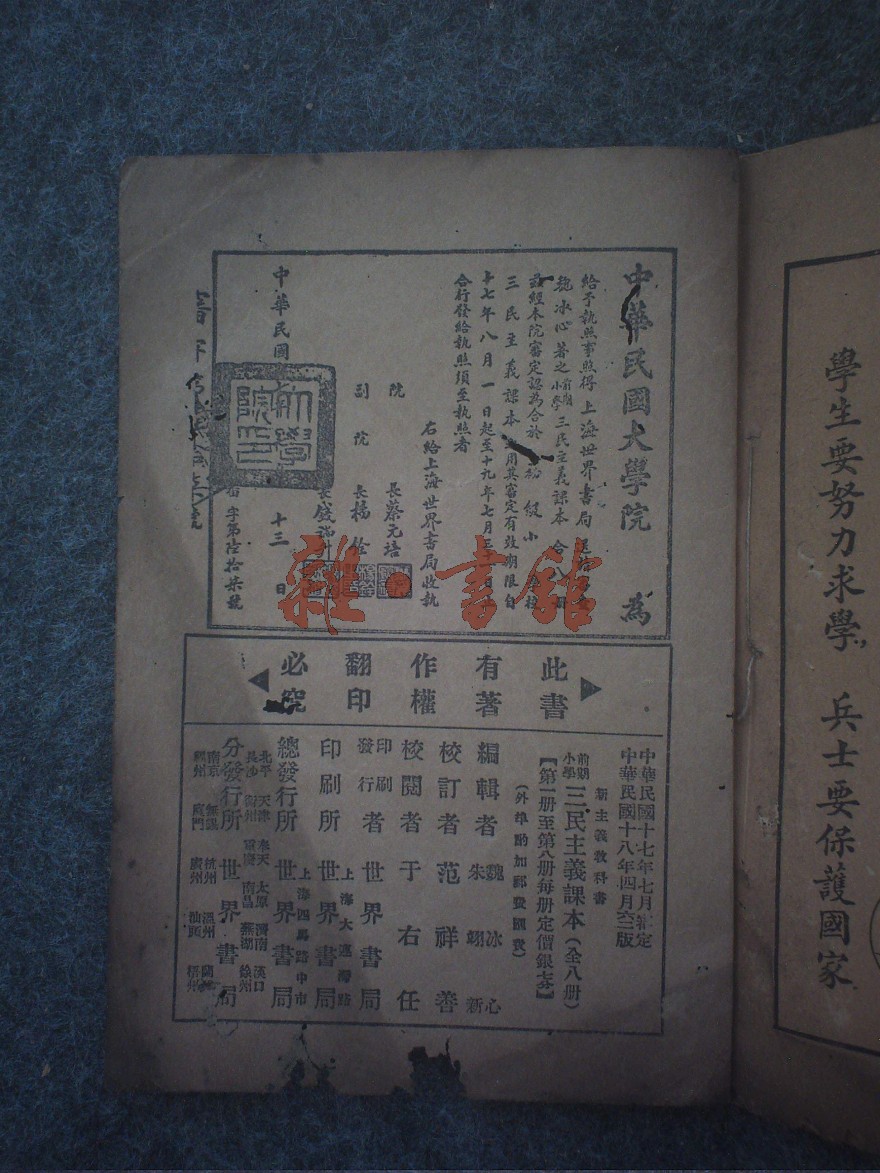 學生要努力求學 兵士要保護國家
中華民國大學院 為
給予執照事照得上海世界書局
魏冰心著之前期小學三民主義課本合
茲經本院審定認為合於 級小
三民主義課本 用其審定有效期限自
十七年八月一日起至十九年七月三
合行發給執照須至執照者
右給上海世界書局收執
院 長蔡元培
副院 長楊銓
中華民國 十三日
字第陸拾柒號
此書有著作權翻印必究
中華民國十七年七月
中華民國十八年四月 版
新主義教科書
前期小學三民主義課本(全八册)
【第一册至第八册每册定價銀 】
(外埠酌加郵費匯費)
編輯者 魏冰心 朱翊新
校訂者 范祥善
校閱者 于右任
印刷發行者 世界書局
印刷所 上海大連灣路 世界書局
總發行所 上海四馬路中市 世界書局
北平 天津 奉天 太原 濟南 漢口
長沙 南昌 蕪湖 徐州
分發行所 世界書局
南京 無錫 杭州 溫州
廈門 廣州 汕頭 梧州
雜·書館